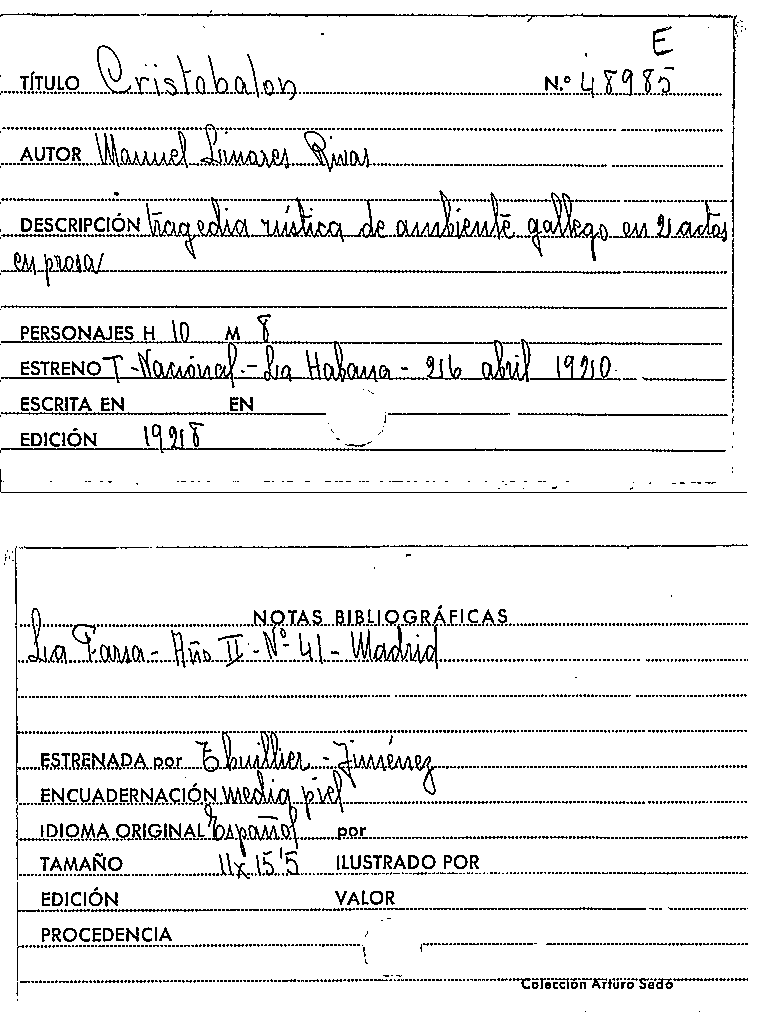 E
TÍTULO Cristobalon N.º 48985
AUTOR Manuel Linares Rivas
DESCRIPCIÓN tragedia rústica de ambiente gallego en 2 actos
en prosa
PERSONAJES H 10 M 8
ESTRENO T-Nacional.- La Habana - 26 abril 1920
ESCRITA EN EN
EDICIÓN 1928
NOTAS BIBLIOGRÁFICAS
La Farsa - Año II - Nº 41 - Madrid
ESTRENADA por Thuillier - Jiménez
ENCUADERNACIÓN media piel
IDIOMA ORIGINAL Español por
TAMAÑO 11x15'5 ILUSTRADO POR
EDICIÓN VALOR
PROCEDENCIA
Colección Arturo Sedó